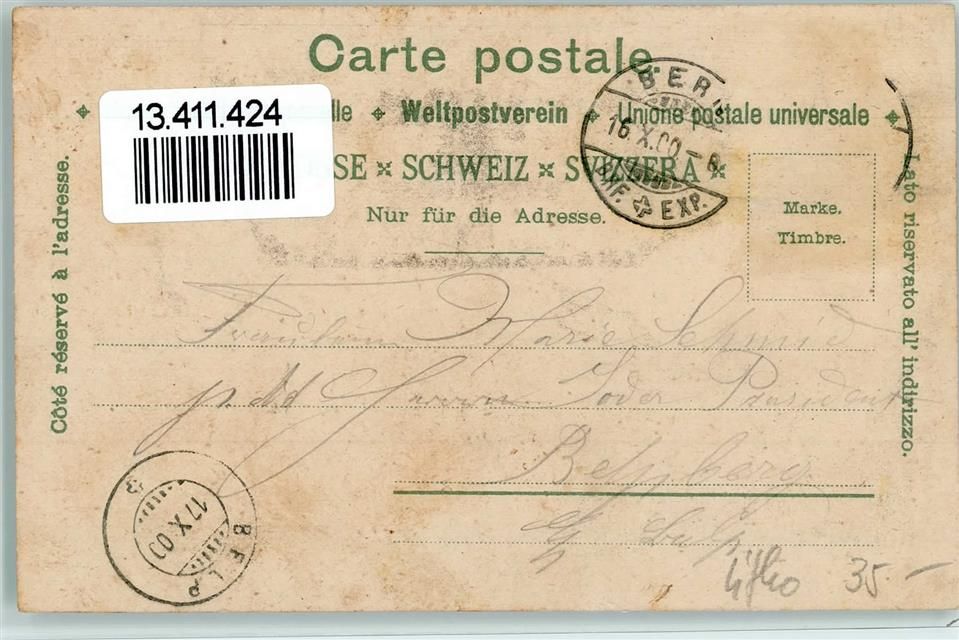 Carte postale.
13.411.424
lle ✦ Weltpostverein ✦ Unione postale universale ✦
SSE × SCHWEIZ × SVIZZERA ×
Nur für die Adresse.
Marke.
Timbre.
Côté réservé à l'adresse.
Lato riservato all' indirizzo.
BER
16.X.00 - 8
BRF. EXP.
Fräulein Marie Schmid
Herrn Soder President
Belpberg
BELP
17.X.00
Litho 35.-